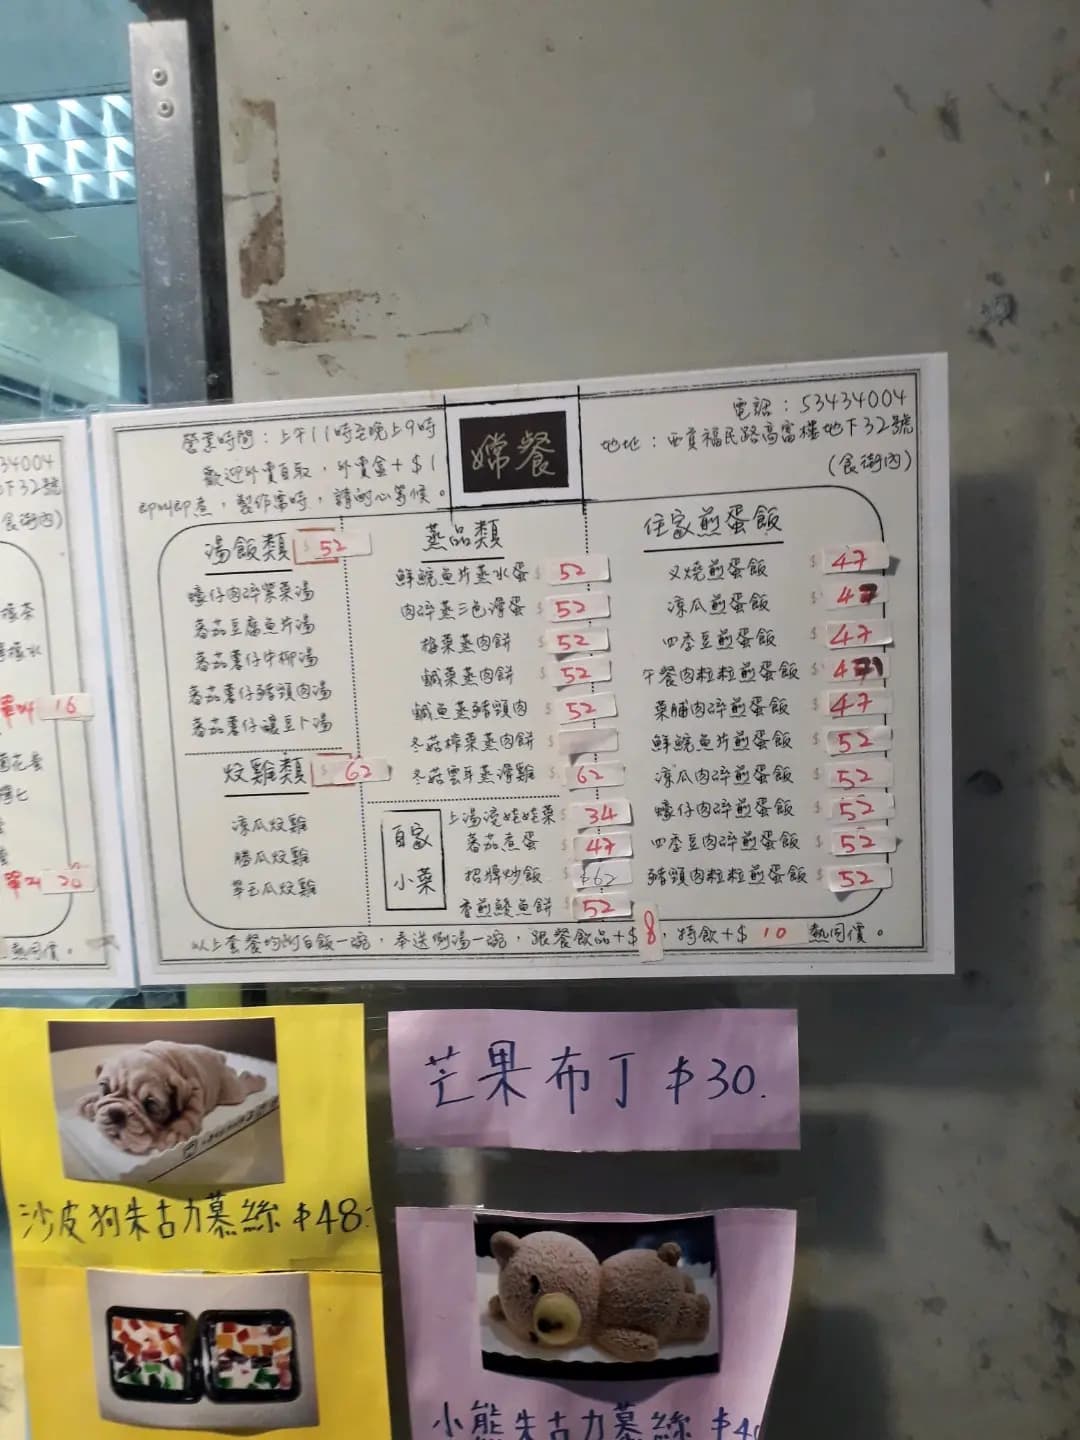 嫦餐
營業時間：上午11時至晚上9時
歡迎外賣自取，外賣盒+$1
即叫即煮，製作需時，請耐心等候。
電話：53434004
地址：西貢福民路高富樓地下32號
(食街內)
湯飯類 $52
蠔仔肉碎紫菜湯
蕃茄豆腐魚片湯
蕃茄薯仔牛柳湯
蕃茄薯仔豬頸肉湯
蕃茄薯仔釀豆卜湯
炆雞類 $62
涼瓜炆雞
勝瓜炆雞
翠玉瓜炆雞
蒸品類
鮮鯇魚片蒸水蛋 $52
肉碎蒸三色滑蛋 $52
梅菜蒸肉餅 $52
鹹菜蒸肉餅 $52
鹹魚蒸豬頸肉 $52
冬菇榨菜蒸肉餅
冬菇雲耳蒸滑雞 $62
自家小菜
上湯浸娃娃菜 $34
蕃茄煮蛋 $47
招牌炒飯 $62
香煎鯪魚餅 $52
住家煎蛋飯
叉燒煎蛋飯 $47
涼瓜煎蛋飯 $47
四季豆煎蛋飯 $47
午餐肉粒粒煎蛋飯 $47
菜脯肉碎煎蛋飯 $47
鮮鯇魚片煎蛋飯 $52
涼瓜肉碎煎蛋飯 $52
蠔仔肉碎煎蛋飯 $52
四季豆肉碎煎蛋飯 $52
豬頸肉粒粒煎蛋飯 $52
以上套餐均附白飯一碗，奉送例湯一碗，跟餐飲品+$8，特飲+$10 熱同價。
34004
下32號
食街內)
16
單叫 20
熱同價。
沙皮狗朱古力慕絲 $48.
芒果布丁 $30.
小熊朱古力慕絲 $4